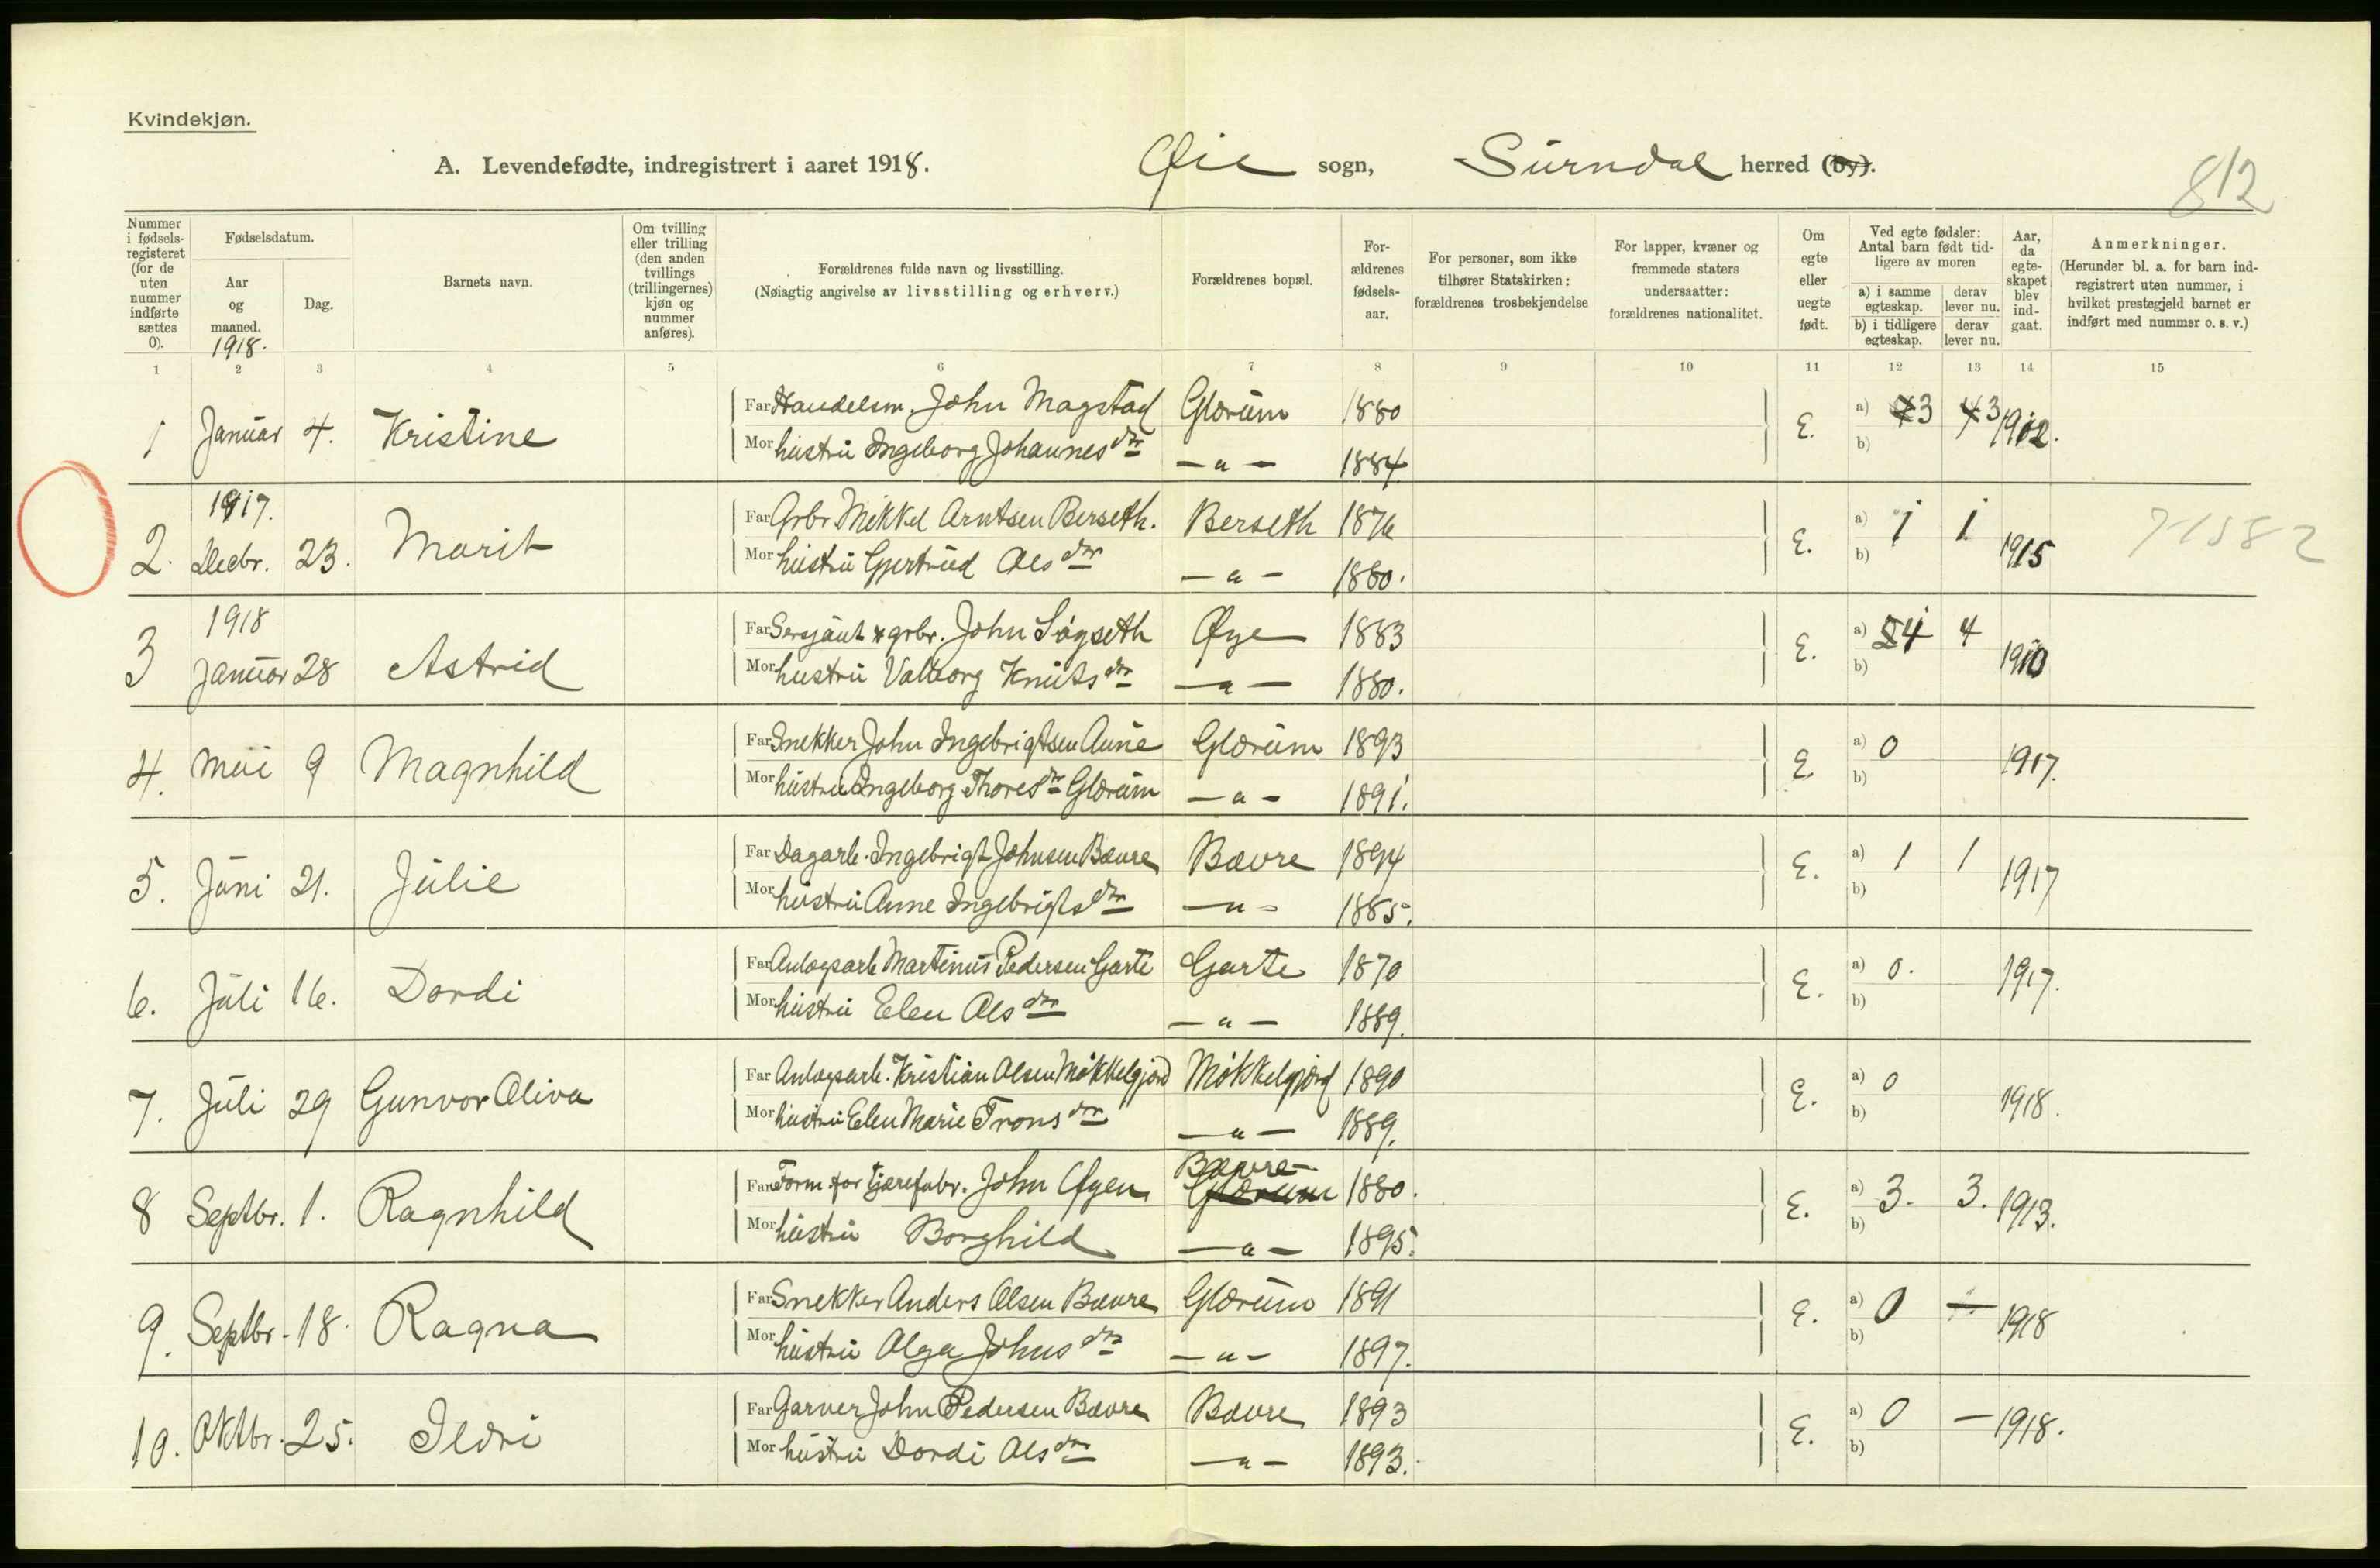 Kvindekjøn.
A. Levendefødte, indregistrert i aaret 1918. Øie sogn, Surndal herred (by).
812
Nummer i fødselsregisteret (for de uten nummer indførte sættes 0).
Fødselsdatum.
Aar og maaned.
1918.
Dag.
Barnets navn.
Om tvilling eller trilling (den anden tvillings (trillingernes) kjøn og nummer anføres).
Forældrenes fulde navn og livsstilling.
(Nøiagtig angivelse av livsstilling og erhverv.)
Forældrenes bopæl.
Forældrenes fødselsaar.
For personer, som ikke tilhører Statskirken: forældrenes trosbekjendelse
For lapper, kvæner og fremmede staters undersaatter: forældrenes nationalitet.
Om egte eller uegte født.
Ved egte fødsler: Antal barn født tidligere av moren
a) i samme egteskap. derav lever nu.
b) i tidligere egteskap. derav lever nu.
Aar, da egteskapet blev indgaat.
Anmerkninger.
(Herunder bl. a. for barn indregistrert uten nummer, i hvilket prestegjeld barnet er indført med nummer o. s. v.)
1 2 3 4 5 6 7 8 9 10 11 12 13 14 15
1 Januar 4. Kristine Far Handelsm. John Magstad Glærum 1880 E. a) 3 3 1902.
Mor hustru Ingeborg Johannesdtr — " — 1884. b)
1917.
2. Decbr. 23. Marit Far Grbr. Mikkel Arntsen Berseth. Berseth 1876 E. a) 1 1 1915 71582
Mor hustru Gjertrud Olsdtr — " — 1880. b)
1918
3 Januar 28 Astrid Far Sersjant & grbr. John Sögseth Øye 1883 E. a) 4 4 1910
Mor hustru Valborg Knutsdtr — " — 1880. b)
4. Mai 9 Magnhild Far Snekker John Ingebrigtsen Aune Glærum 1893 E. a) 0 1917.
Mor hustru Ingeborg Thoresdtr Glærum — " — 1891. b)
5. Juni 21. Julie Far Dagarb. Ingebrigt Johnsen Bævre Bævre 1894 E. a) 1 1 1917
Mor hustru Anne Ingebrigtsdtr — " — 1885. b)
6. Juli 16. Dordi Far Anlægsarb. Martinus Pedersen Garte Garte 1870 E. a) 0. 1917.
Mor hustru Elen Olsdtr — " — 1889. b)
7. Juli 29 Gunvor Oliva Far Anlægsarb. Kristian Olsen Mökkelgjerd Mökkelgjerd 1890 E. a) 0 1918.
Mor hustru Elen Marie Tronsdtr — " — 1889. b)
8 Septbr. 1. Ragnhild Far Form. for tjærefabr. John Øyen Bævre Glærum 1880. E. a) 3. 3. 1913.
Mor hustru Borghild — " — 1895. b)
9. Septbr. 18. Ragna Far Snekker Anders Olsen Bævre Glærum 1891 E. a) 0 — 1918
Mor hustru Olga Johnsdtr — " — 1897. b)
10. Oktbr. 25. Ildri Far Garver John Pedersen Bævre Bævre 1893 E. a) 0 — 1918.
Mor hustru Dordi Olsdtr — " — 1893. b)